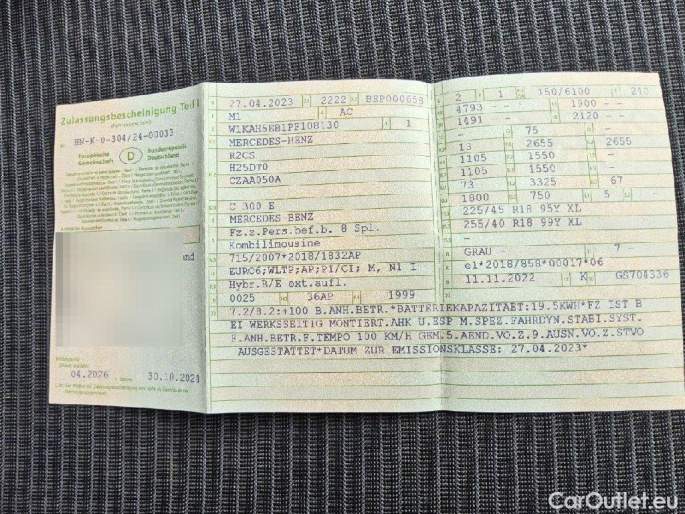 Zulassungsbescheinigung Teil I
Europäische Gemeinschaft
D
Bundesrepublik Deutschland
04.2026
27.04.2023 2222 BEP000658
M1 AC
1
MERCEDES-BENZ
R2CS
H25DT0
CZAA050A
C 300 E
MERCEDES-BENZ
Fz.z.Pers.bef.b. 8 Spl.
Kombilimousine
715/2007*2018/1832AP
EURO6;WLTP;AP;PI/CI; M, N1 I
Hybr.B/E ext.aufl.
0025 36AP 1999
7.2/8.2:+100 B.ANH.BETR.*BATTERIEKAPAZITAET:19.5KWH*FZ IST B
EI WERKSSEITIG MONTIERT.AHK U.ESP M.SPEZ.FAHRDYN.STABI.SYST.
F.ANH.BETR.F.TEMPO 100 KM/H GEM.5.AEND.VO.Z.9.AUSN.VO.Z.STVO
AUSGESTATTET*DATUM ZUR EMISSIONSKLASSE: 27.04.2023*
2 1 150/6100 210
4793 1900 —
1491 2120 —
— 75 —
13 2655 2655
1105 1550 —
1105 1550 —
73 3325 67
1800 750 5 —
225/45 R18 95Y XL
255/40 R18 99Y XL
—
GRAU — 7 -
e1*2018/858*00017*06
11.11.2022 K GS704336
CarOutlet.eu